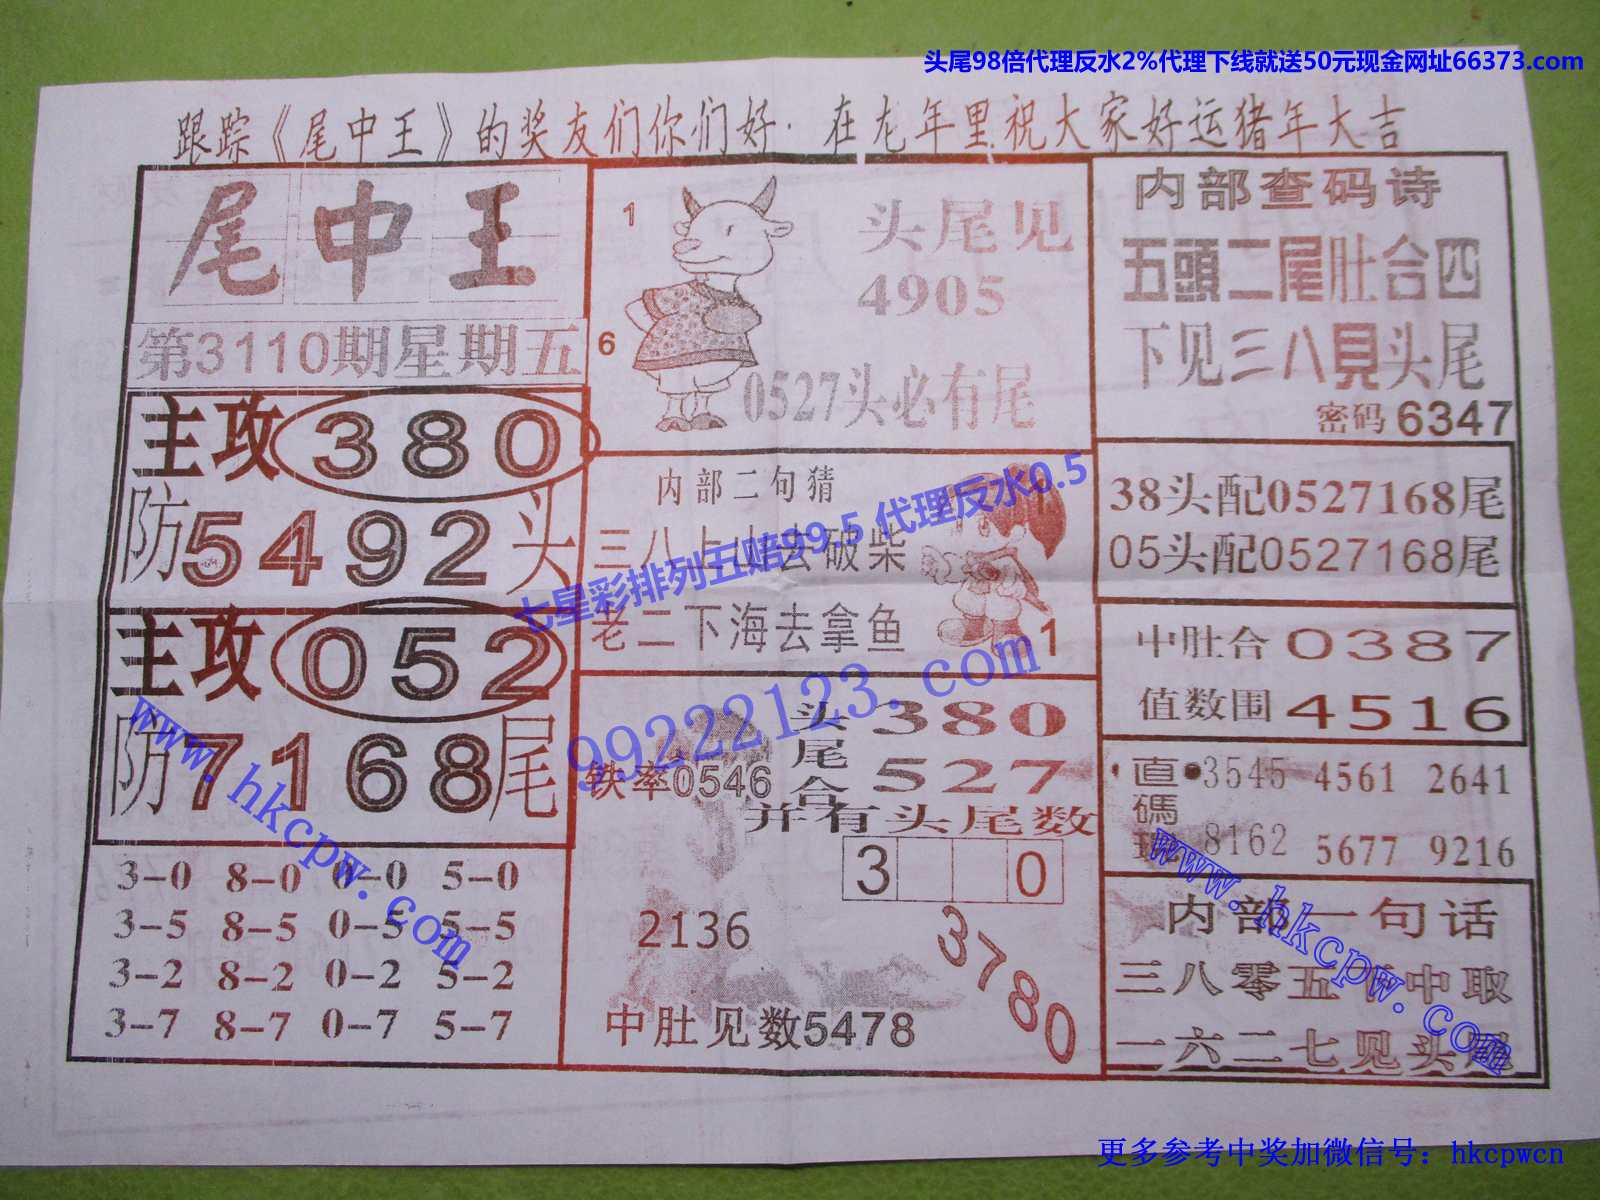 头尾98倍代理反水2%代理下线就送50元现金网址66373.com
跟踪《尾中王》的奖友们你们好·在龙年里祝大家好运猪年大吉
尾中王
第3110期星期五
主攻380
防5492头
主攻052
防7168尾
3-0 8-0 0-0 5-0
3-5 8-5 0-5 5-5
3-2 8-2 0-2 5-2
3-7 8-7 0-7 5-7
1
6
头尾见
4905
0527头必有尾
内部二句猜
三八上山去破柴
老二下海去拿鱼
1
七星彩排列五赔99.5 代理反水0.5
99222123.com
铁率0546
头尾合
380
527
并有头尾数
3 0
2136
3780
中肚见数5478
内部查码诗
五頭二尾肚合四
下见三八見头尾
密码6347
38头配0527168尾
05头配0527168尾
中肚合0387
值数围4516
直碼
3545 4561 2641
8162 5677 9216
内部一句话
三八零五 中取
一六二七见头尾
www.hkcpw.com
www.hkcpw.com
更多参考中奖加微信号：hkcpwcn